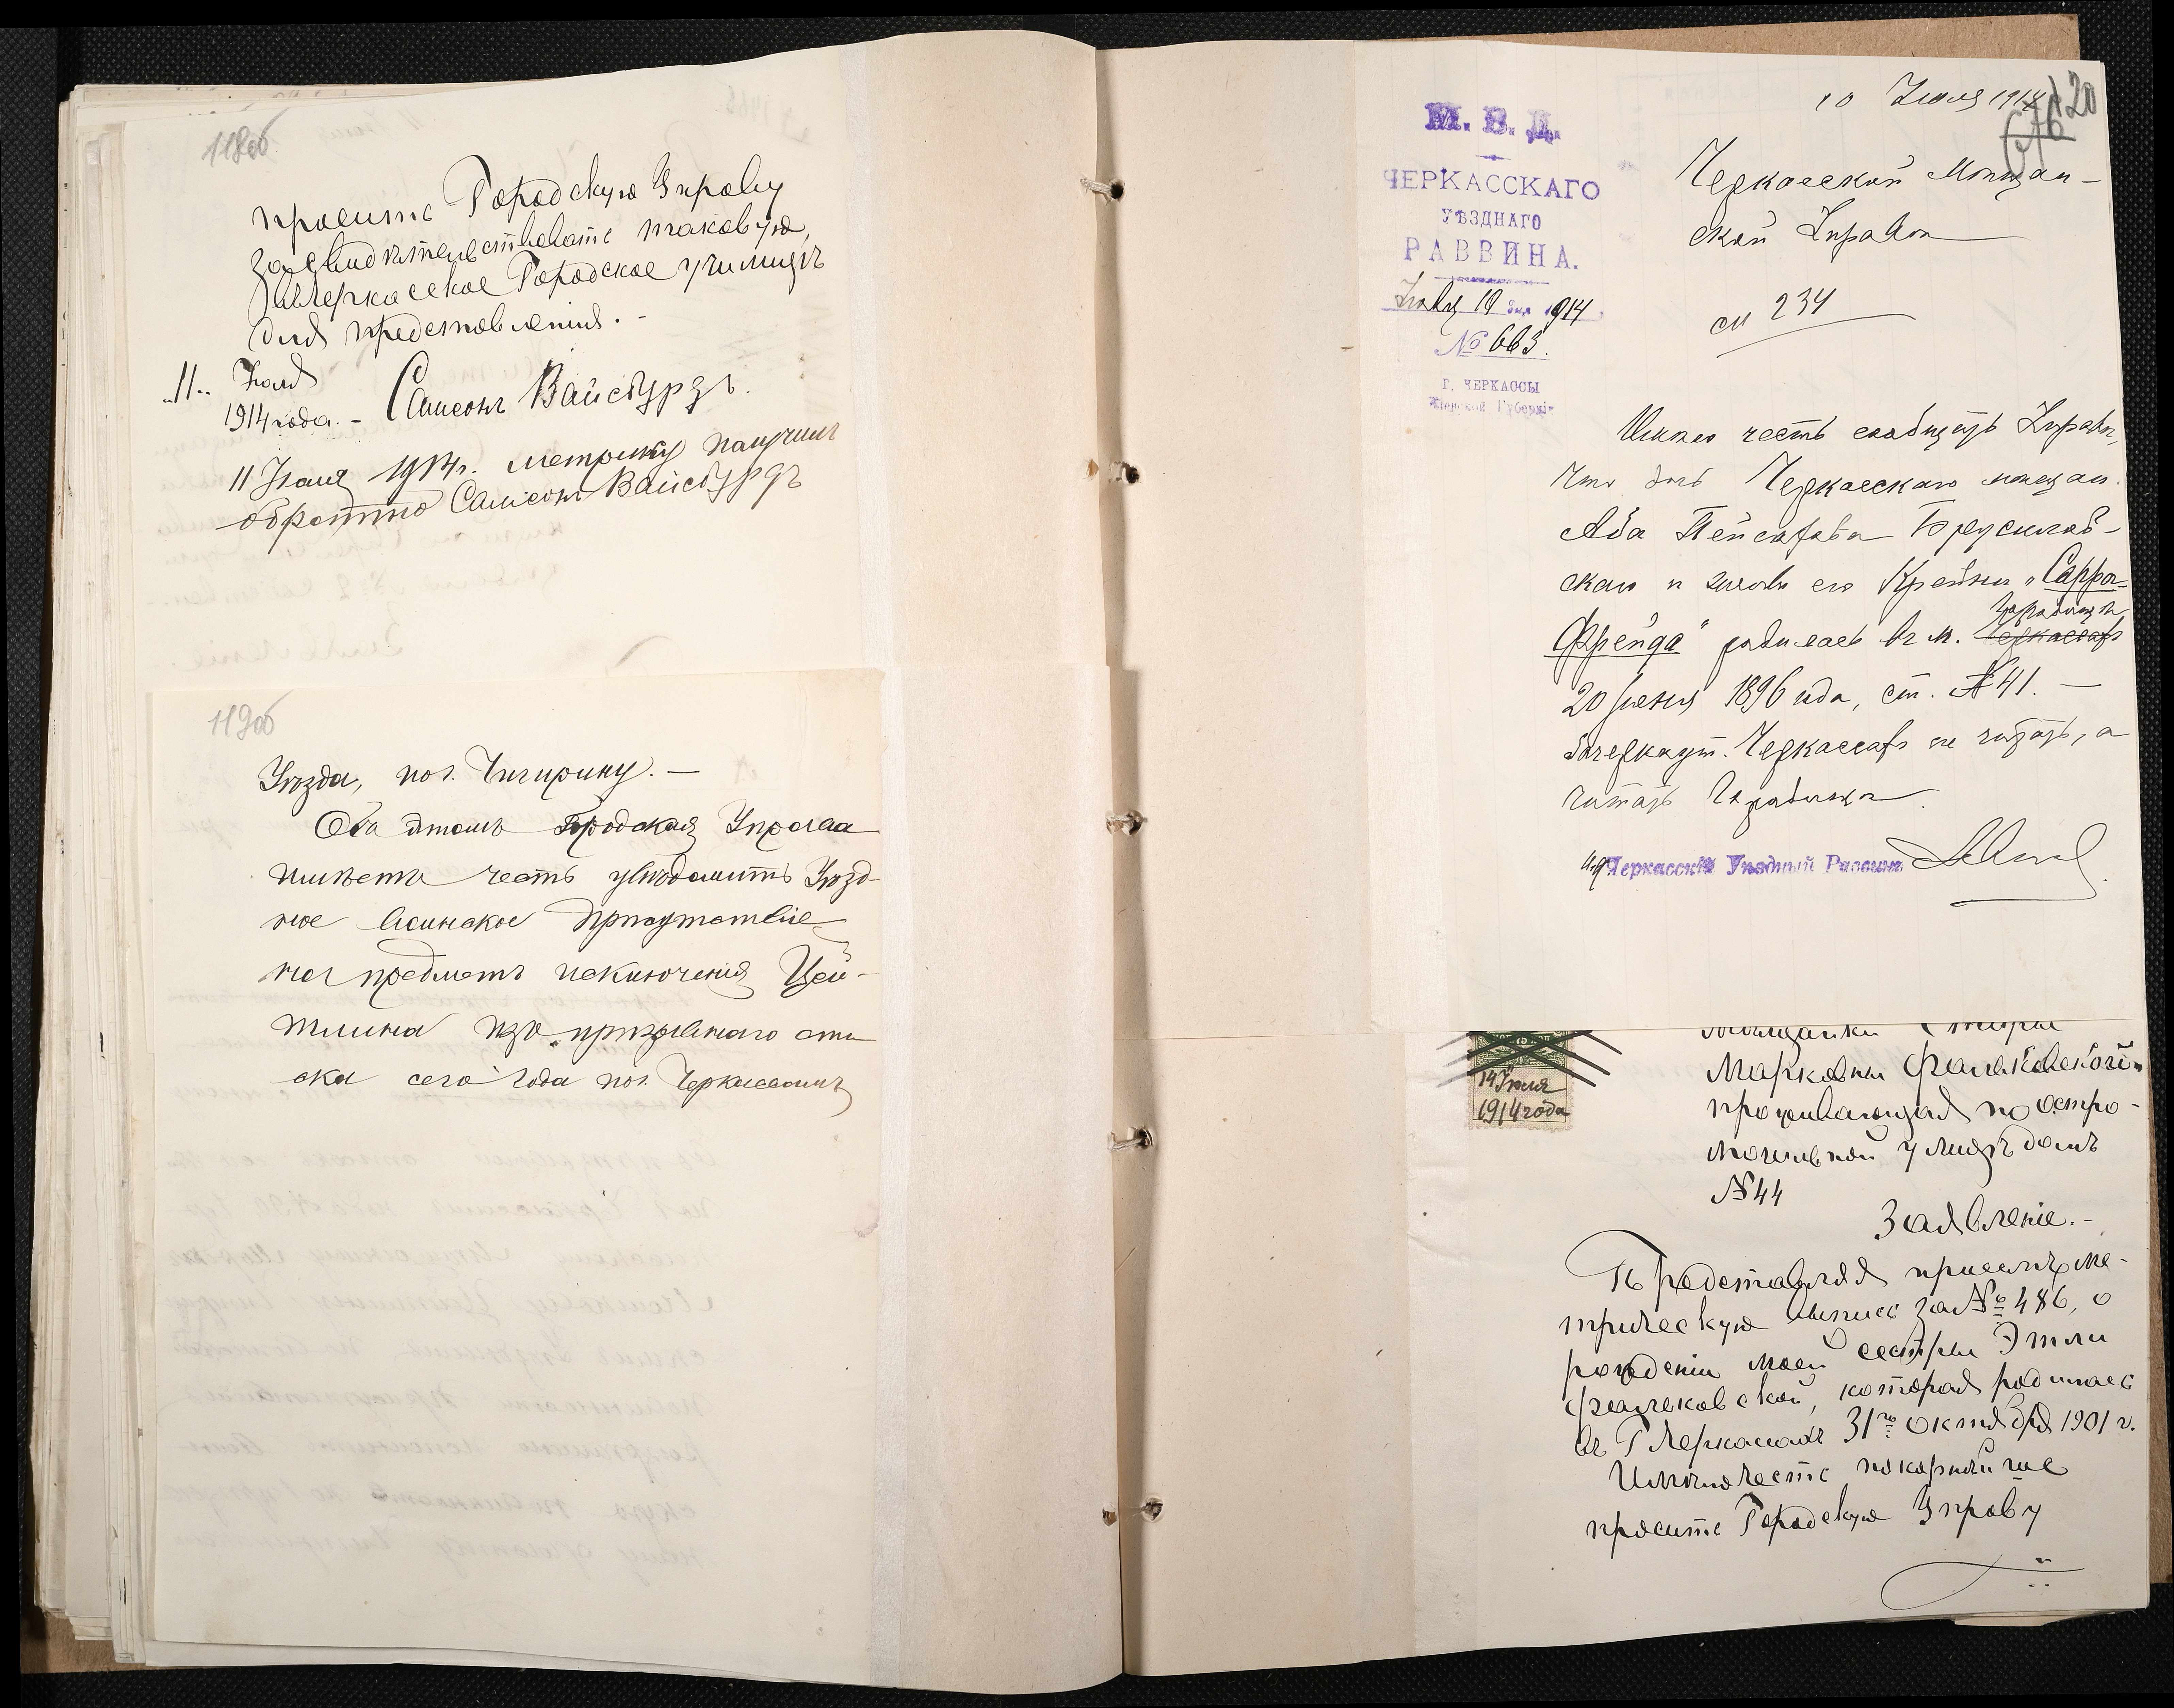 118об
просить Городскую Управу
засвидѣтельствовать таковую,
въ Черкаское Городское училище
для представленія. -
„11„ Іюля
1914 года. - Самсонъ Вайсбурдъ.
11 Іюля 1914 г. метрику получилъ
обратно Самсонъ Вайсбурдъ
119об
Уѣзда, по г. Чигирину. —
Объ этомъ Городская Управа
имѣетъ честь увѣдомить Уѣзд-
ное Воинское Присутствіе
на предметъ исключенія Цей-
тлина изъ призывнаго спи
ска сего года по г. Черкассамъ
10 Іюля 1914
120
М. В. Д.
ЧЕРКАССКАГО
УѢЗДНАГО
РАВВИНА.
Іюля 10 дня 1914
№ 663.
Г. ЧЕРКАССЫ
Кіевской Губерніи
Черкасской Мѣщан-
ской Управѣ
234
Имѣю честь сообщить Управѣ,
что дочь Черкасскаго мѣщан.
Аба Пейсахова Бреусилов-
скаго и жены его Крейны „Сарра-
Фрейда" родилась въ м. Черкассахъ
Городищѣ
20 Іюня 1896 года, ст. № 41. —
Зачеркнут. Черкассахъ не читать, а
читать Городища
Черкасскій Уѣздный Раввинъ
14 Іюля
1914 года
Мѣщанки
Марковны Фальковской
проживающая по Остро-
могильной улицѣ домъ
№ 44
Заявленіе. -
Представляя при семъ ме-
трическую выпись за № 486, о
рожденіи моей сестры Этли
Фальковской, которая родилась
въ Г Черкасахъ 31го октября 1901 г.
Имѣю честь покорнѣйше
просить Городскую Управу